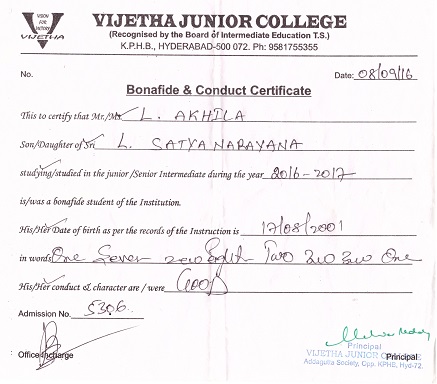 VISION FOR VICTORY
VIJETHA
VIJETHA JUNIOR COLLEGE
(Recognised by the Board of Intermediate Education T.S.)
K.P.H.B., HYDERABAD-500 072. Ph: 9581755355
No. Date: 08/09/16
Bonafide & Conduct Certificate
This to certify that Mr./Ms. L. AKHILA
Son/Daughter of Sri L. SATYA NARAYANA
studying/studied in the junior /Senior Intermediate during the year 2016-2017
is/was a bonafide student of the Institution.
His/Her Date of birth as per the records of the Instruction is 17/08/2001
in words One Seven zero Eight Two zero zero One
His/Her conduct & character are / were GOOD
Admission No. 5306
Office Incharge Principal
Principal
VIJETHA JUNIOR COLLEGE
Addagutta Society, Opp. KPHB, Hyd-72.